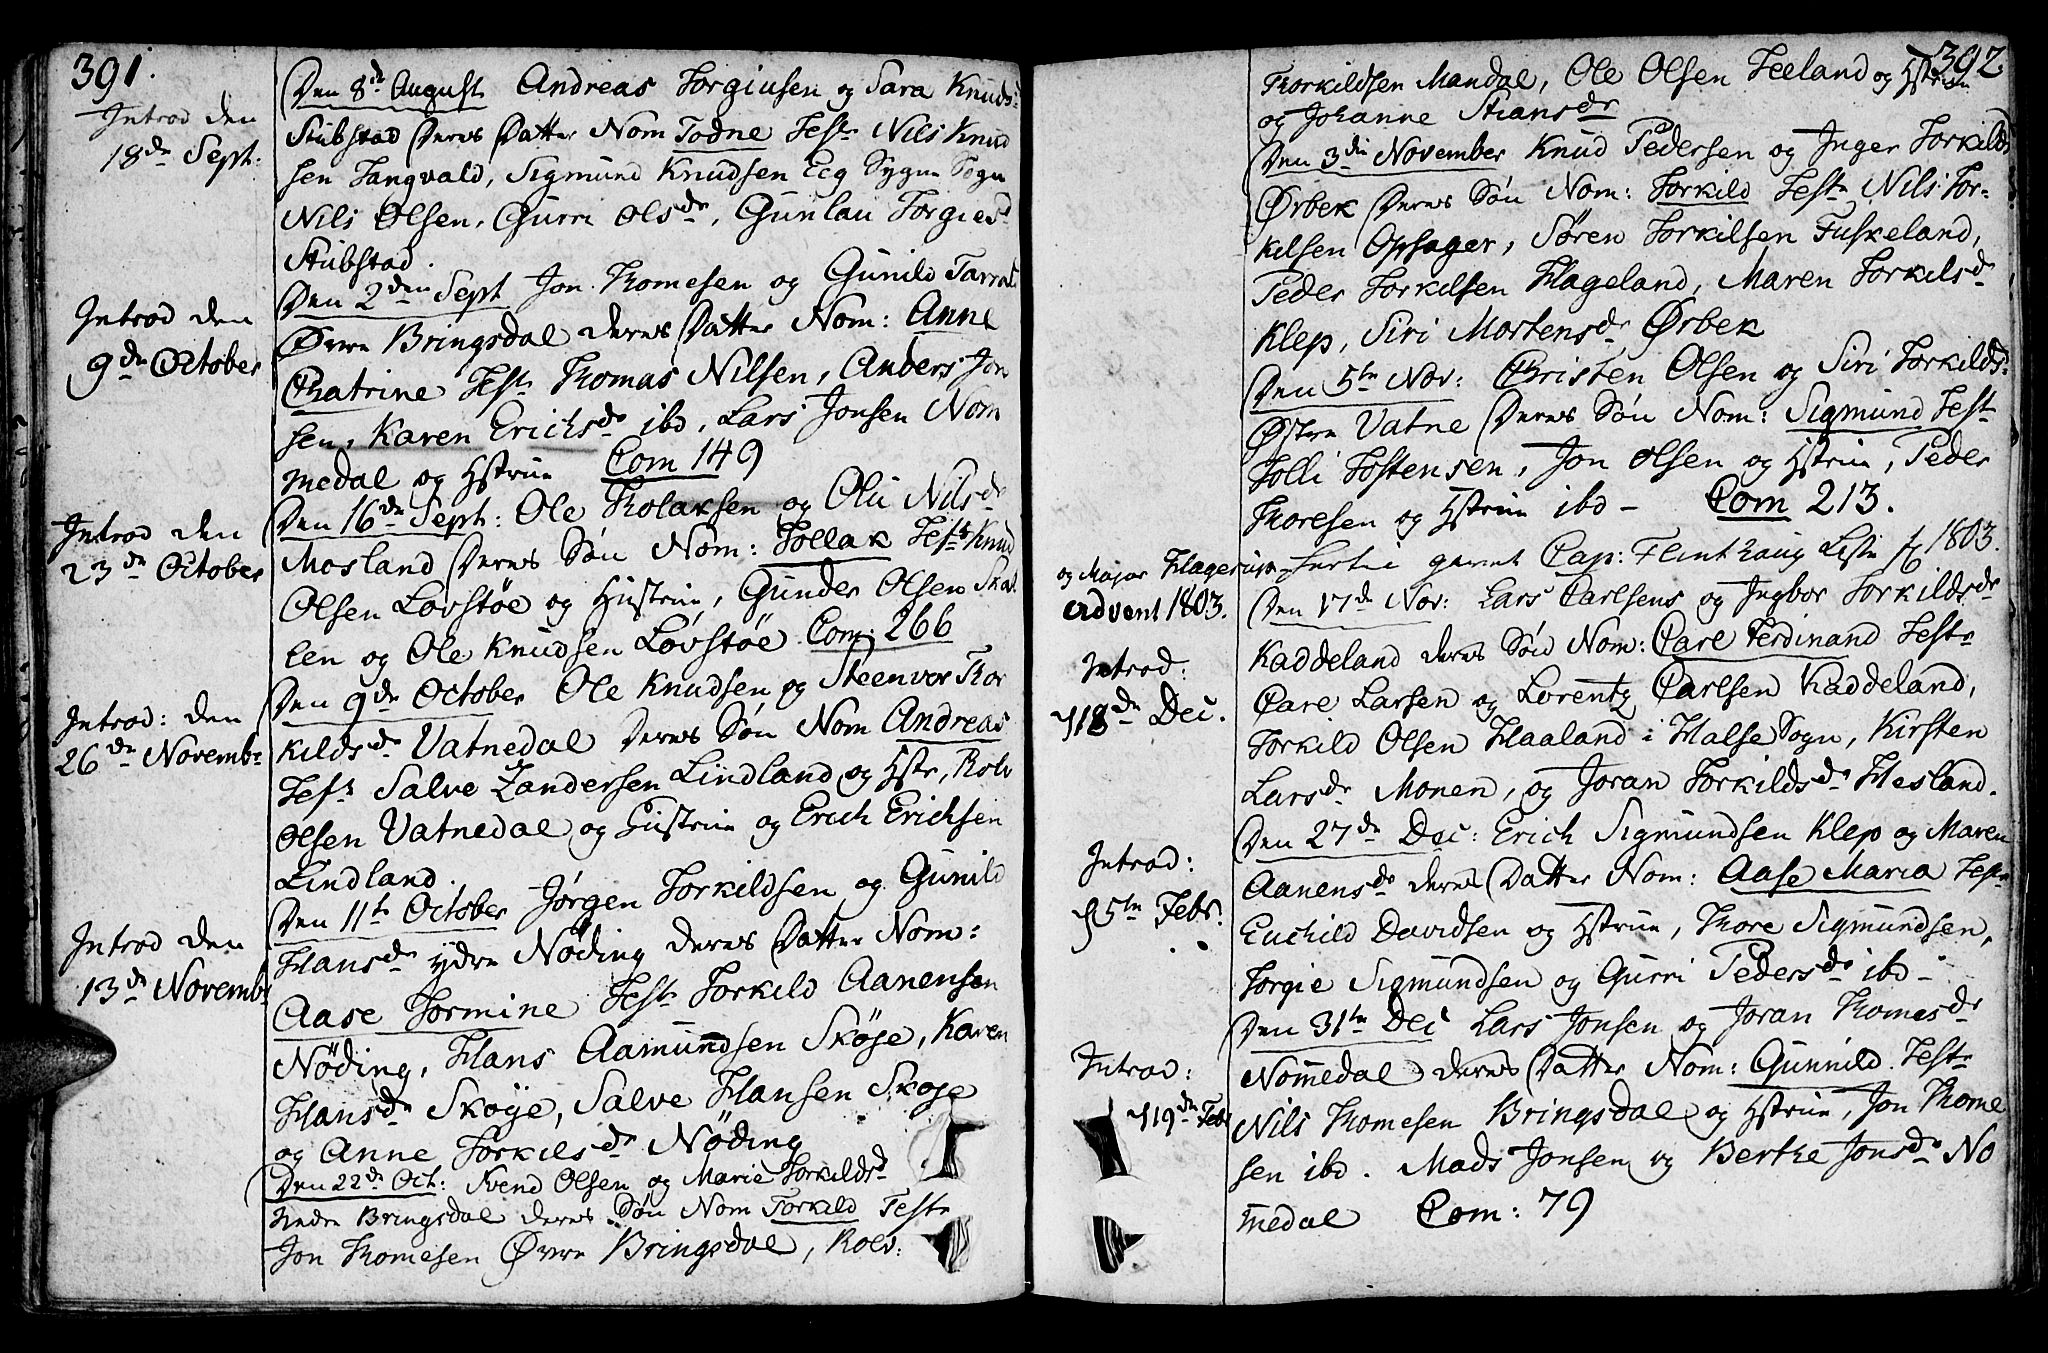 391.
Introd den
18de Sept:
Introd den
9de October
Introd den
23de October
Introd: den
26de Novembr
Introd den
13de Novemb:
Den 8de August Andreas Torgiusen og Sara Knuds
Stubstad Deres Datter Nom Todne Test. Nils Knud
sen Tangvald, Sigmund Knudsen Eeg Sygne Sogn
Nils Olsen, Gurri Olsdr, Gunlau Torgiesd
Stubstad.
Den 2den Sept Jon Thomesen og Gunild Tarrald
Øvre Bringsdal deres Datter Nom: Anne
Chatrine Test. Thomas Nilsen, Anders Jon
sen, Karen Erichsdr ibd, Lars Jonsen Nom
medal og Hstrue Com 149
Den 16de Sept: Ole Tholaksen og Olu Nilsdr
Mosland Deres Søn Nom: Tollak Test. Knud
Olsen Løvstøe og Hustrue, Gunder Olsen
len og Ole Knudsen Løvstøe Com: 266
Den 9de October Ole Knudsen og Steenvor Thor
kildsdr Vatnedal Deres Søn Nom Andreas
Test. Salve Zandersen Lindland og Hstr, Rolv
Olsen Vatnedal og Hustrue og Erich Erichsen
Lindland.
Den 11te October Jørgen Torkildsen og Gunild
Hansdr ydre Nøding deres Datter Nom:
Aase Tormine Test. Torkild Aanensen
Nøding, Hans Aamundsen Skøye, Karen
Hansdr Skøye, Salve Hansen Skøye
og Anne Torkelsdr Nøding
Den 22de Oct: Svend Olsen og Marie Torkildsd
Nedre Bringsdal deres Søn Nom Torkild Test.
Jon Thomesen Øvre Bringsdal, Rolv:
392
Thorkildsen Mandal, Ole Olsen Teeland og Hstrue
og Johanne Stiansdr
Den 3die November Knud Pedersen og Inger Torkilds
Ørbek Deres Søn Nom: Torkild Test. Nils Tor-
kilsen Opsager, Søren Torkilsen Fuskeland,
Peder Torkilsen Hageland, Maren Torkilsdr
Klep, Siri Mortensdr Ørbek
Den 5te Nov: Christen Olsen og Siri Torkildsd
Østre Vatne Deres Søn Nom: Sigmund Test.
Tolli Tostensen, Jon Olsen og Hstrue, Peder
Thoresen og Hstrue ibd - Com 213.
gemt Cap: Flinthaug Liste 1803.
og Major Hagerup
Advent 1803.
Den 17de Nov: Lars Carlsens og Ingbor Torkildsdr
Kaddeland deres Søn Nom: Carl Ferdinand Test.
Carl Larsen og Lorentz Carlsen Kaddeland,
Torkild Olsen Haaland i Halse Sogn, Kirsten
Larsdr Monen, og Joran Torkildsdr Hesland.
Den 27de Dec: Erich Sigmundsen Klep og Maren
Aanensdr deres Datter Nom: Aase Maria Test.
Euchild Davidsen og Hstrue, Thore Sigmundsen,
Torgie Sigmundsen og Gurri Pedersdr ibd -
Den 31te Dec Lars Jonsen og Joran Thomesdr
Nommedal deres Datter Nom: Gunnild. Test.
Nils Thomesen Bringsdal og Hstrue, Jon Thome
sen ibd. Mads Jonsen og Berthe Jonsdr No
medal Com: 79
Introd:
18de Dec.
Introd:
5te Febr.
Introd:
19de Febr